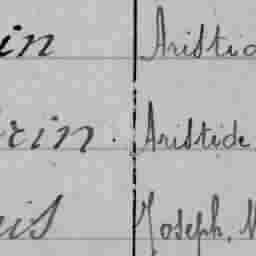 in Aristid
rin. Aristide
uis Joseph. M